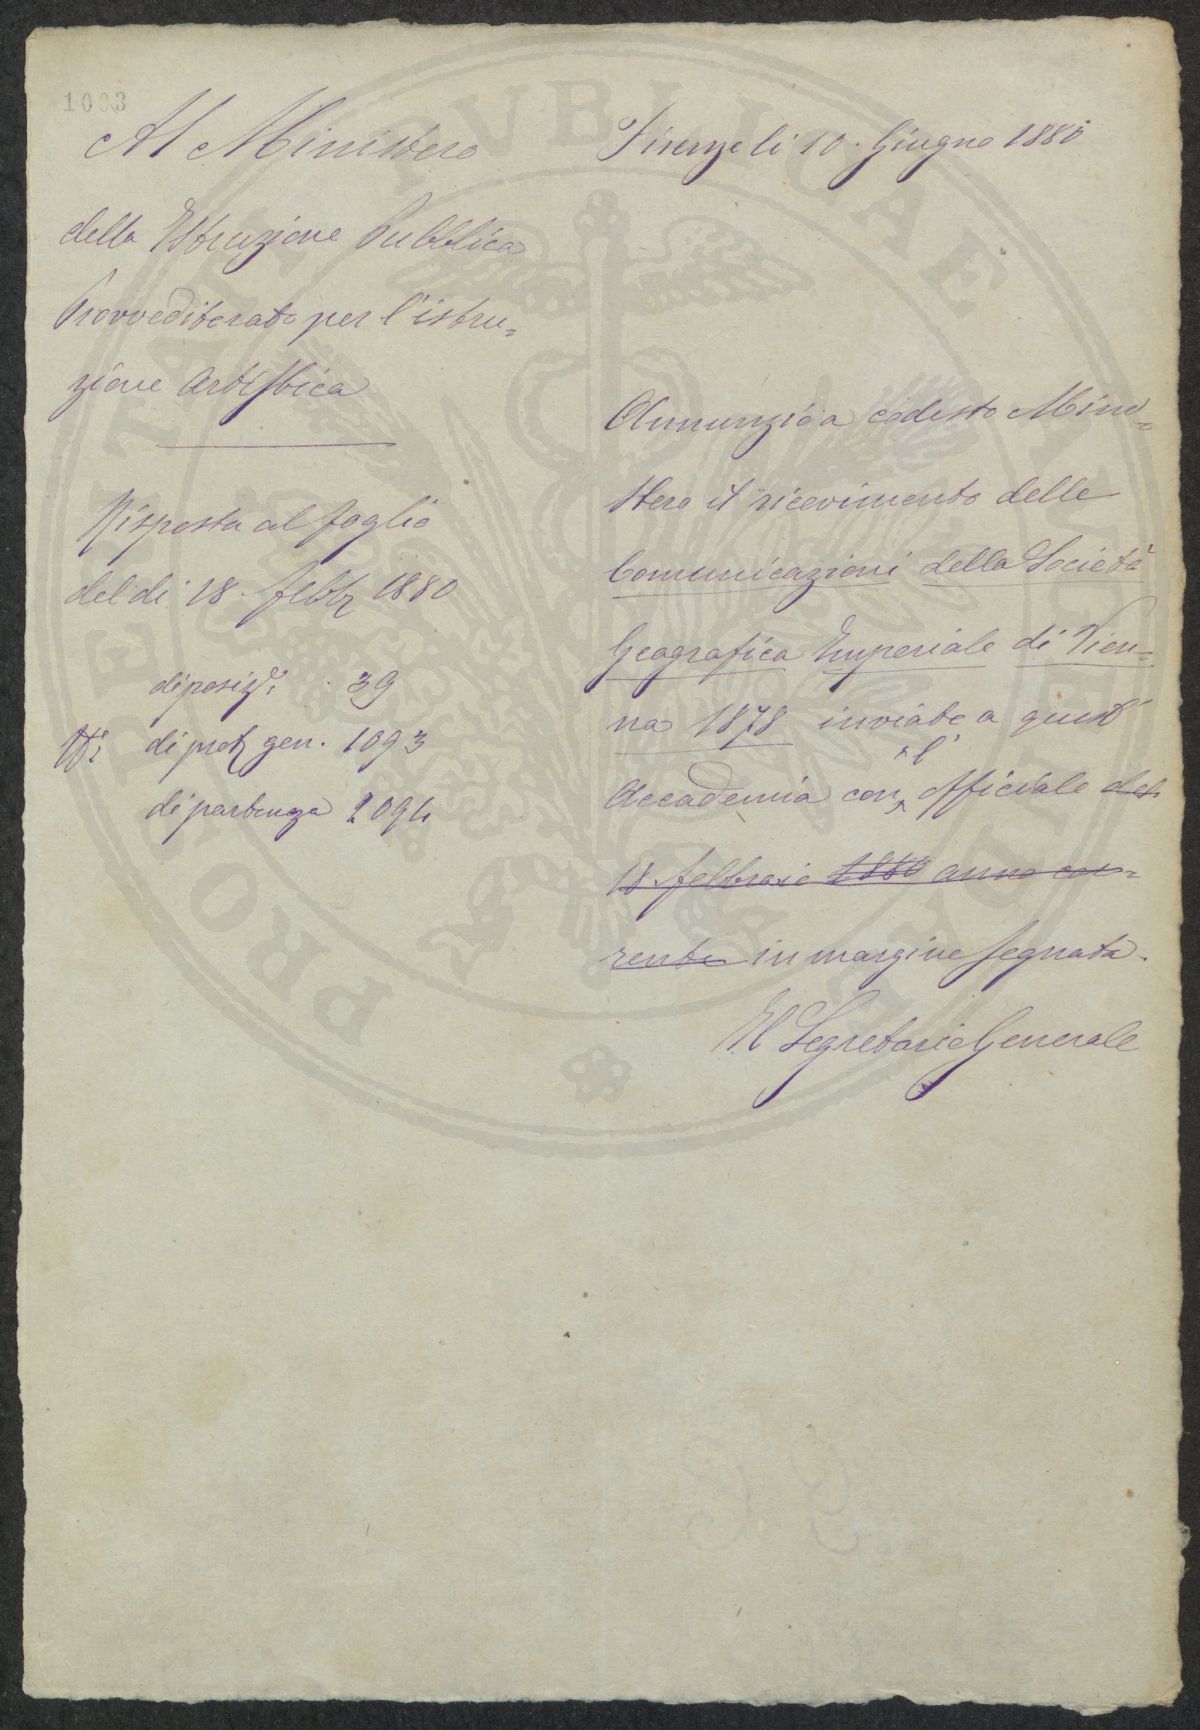 1003
Al Ministero
della Istruzione Pubblica
Provveditorato per l'istru=
zione Artistica
Risposta al foglio
del di 18. febb 1880
di posiz. 39
di prot gen. 1093
di partenza 2094
Firenze li 10. Giugno 1880
Annunzio a codesto Mini=
stero il ricevimento delle
Comunicazioni della Società
Geografica Imperiale di Vien=
na 1878 inviate a quest'
Accademia con l' Officiale del
18 febbraio 1880 anno cor=
rente in margine segnata.
Il Segretario Generale